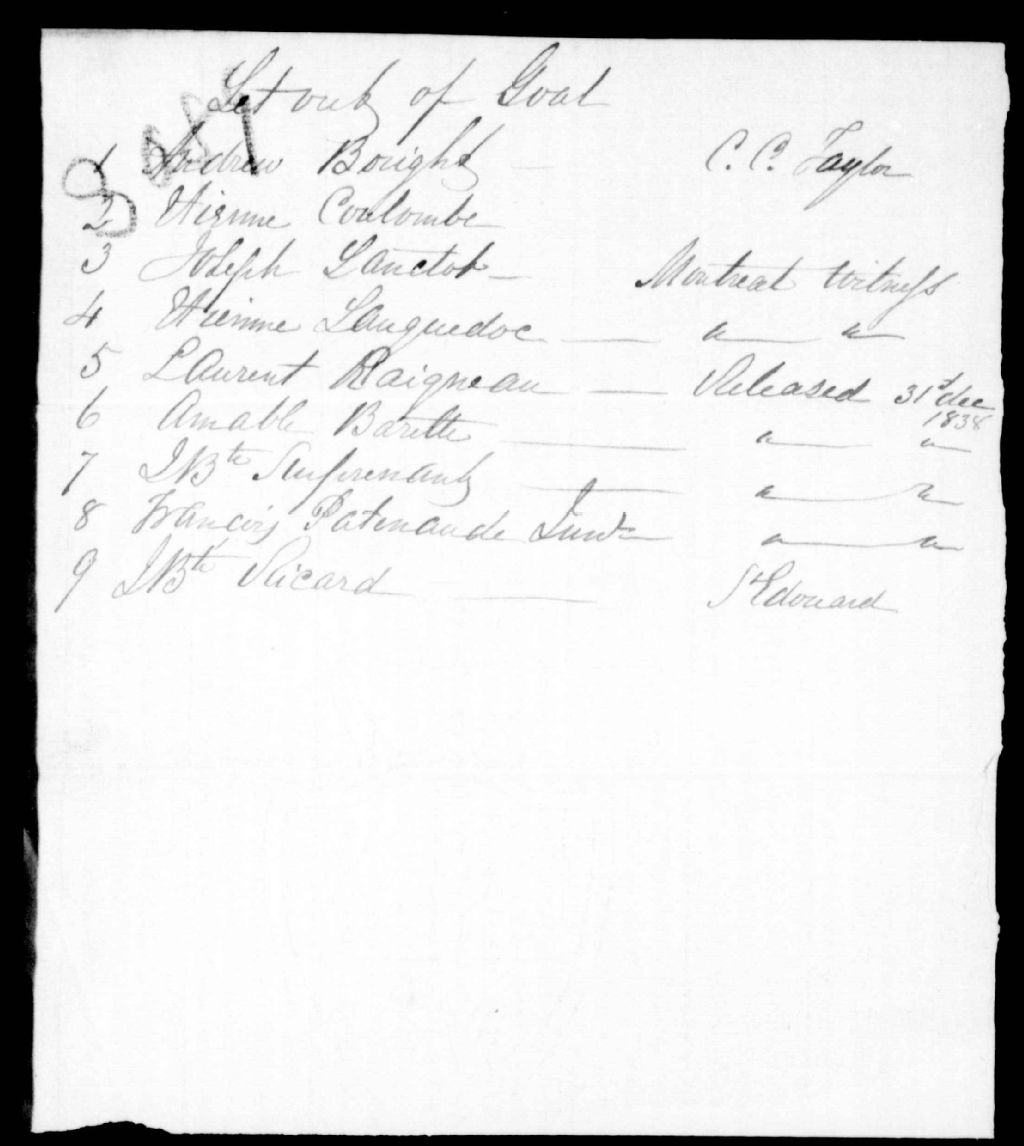 Let out of Goal
1 Andrew Bought — C. C. Taylor
2 Etienne Coulombe
3 Joseph Lanctot — Montreal Witness
4 Etienne Languedoc — " — "
5 Laurent Raigneau — Released 31st dec 1838
6 Amable Barette — " — "
7 JBte Surprenant — " — "
8 Francois Patenaude — " — "
9 JBte Ricard — St Edouard